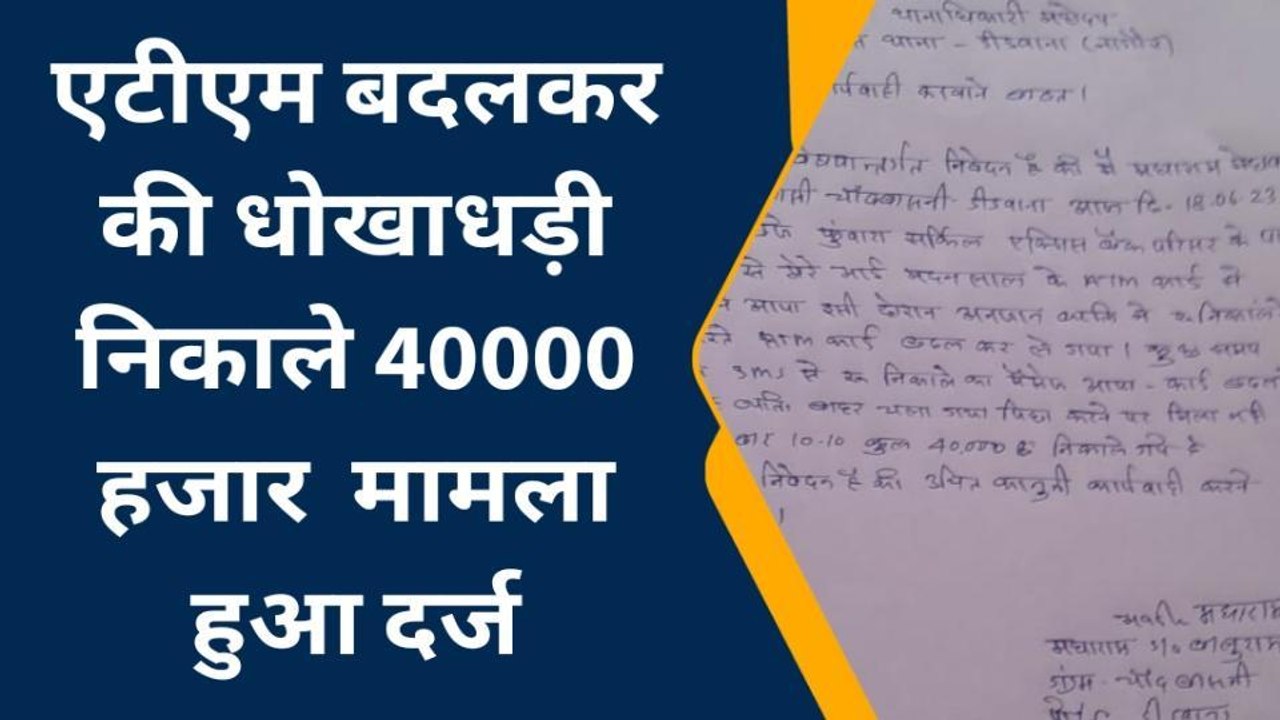 एटीएम बदलकर
की धोखाधड़ी
निकाले 40000
हजार मामला
हुआ दर्ज
थानाधिकारी महोदय
थाना - डीडवाना (नागौर)
कार्यवाही करवाने बाबत।
निवेदन है की मैं मघाराम
डीडवाना आज दि. 18.06.23
फुंवारा सर्किल एक्सिस बैंक परिसर के पा
से मेरे भाई मदनलाल के ATM कार्ड से
आया इसी दौरान अनजान व्यक्ति ने रू निकालने
ATM कार्ड बदल कर ले गया। कुछ समय
SMS से रू निकाले का मैसेज आया - कार्ड बदलने
व्यक्ति बाहर चला गया पिछा करने पर मिला नही
बार 10-10 कुल 40,000 रू निकाले गये है
निवेदन है की उचित कानुनी कार्यवाही करने
।
मघाराम
मघाराम S/o बाबुराम
ग्राम - चाँदबासनी